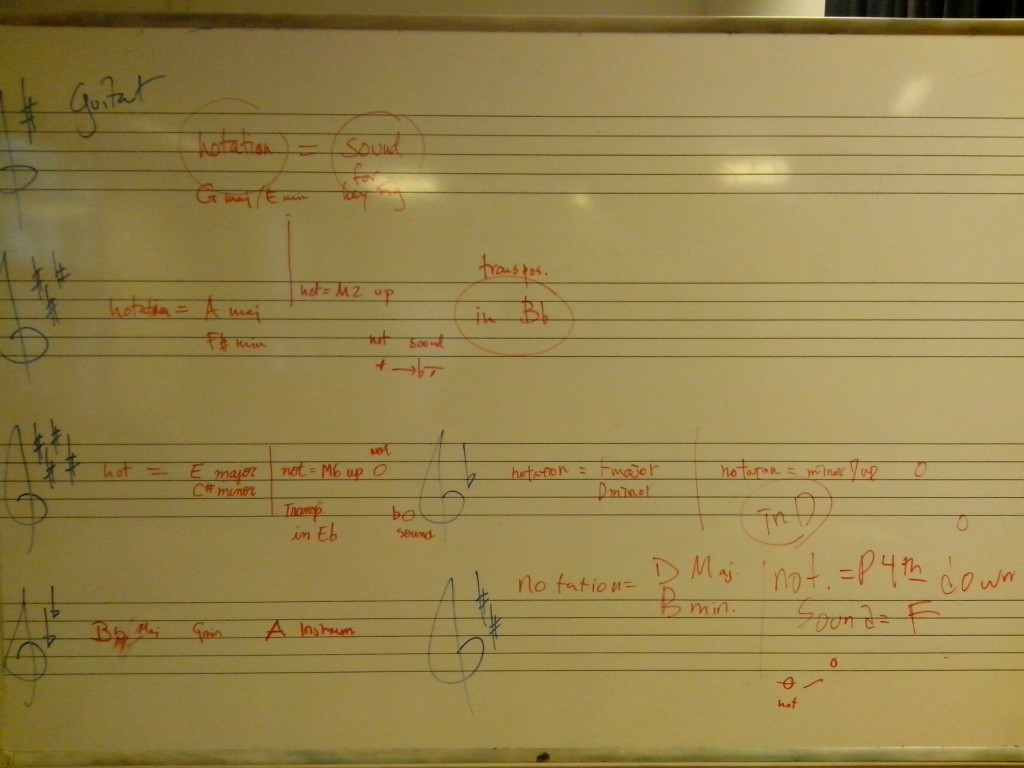 Guitar
notation = sound
for
G maj/E min key sig
not = M2 up
transpos.
notation = A maj
in Bb
F# min
not sound
not
not = E major
C# minor
not = M6 up
Transp.
in Eb
sound
notation = F major
D minor
notation = minor 7 up
in D
Bb Maj Gmin A Instrum
notation = D Maj.
B min.
not. = P4th down
Sound = F
not